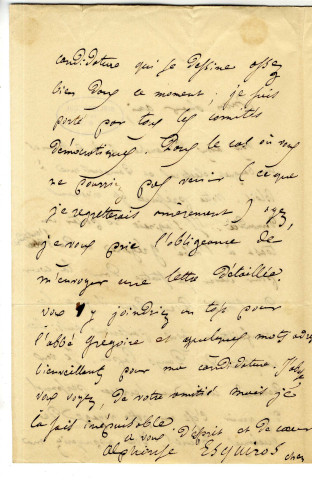 candidature qui se dessine assez
bien dans ce moment ; je suis
porté par tous les comités
démocratiques. Dans le cas où vous
ne pourriez pas venir (ce que
je regretterais amèrement) ayez,
je vous prie l'obligeance de
m'envoyer une lettre détaillée.
vous y joindriez un pour
l'abbé Grégoire et quelques mots
bienveillants pour ma candidature.
vous voyez, de votre amitié mais je
la sais inépuisable
à vous d'esprit et de cœur
Alphonse Esquiros